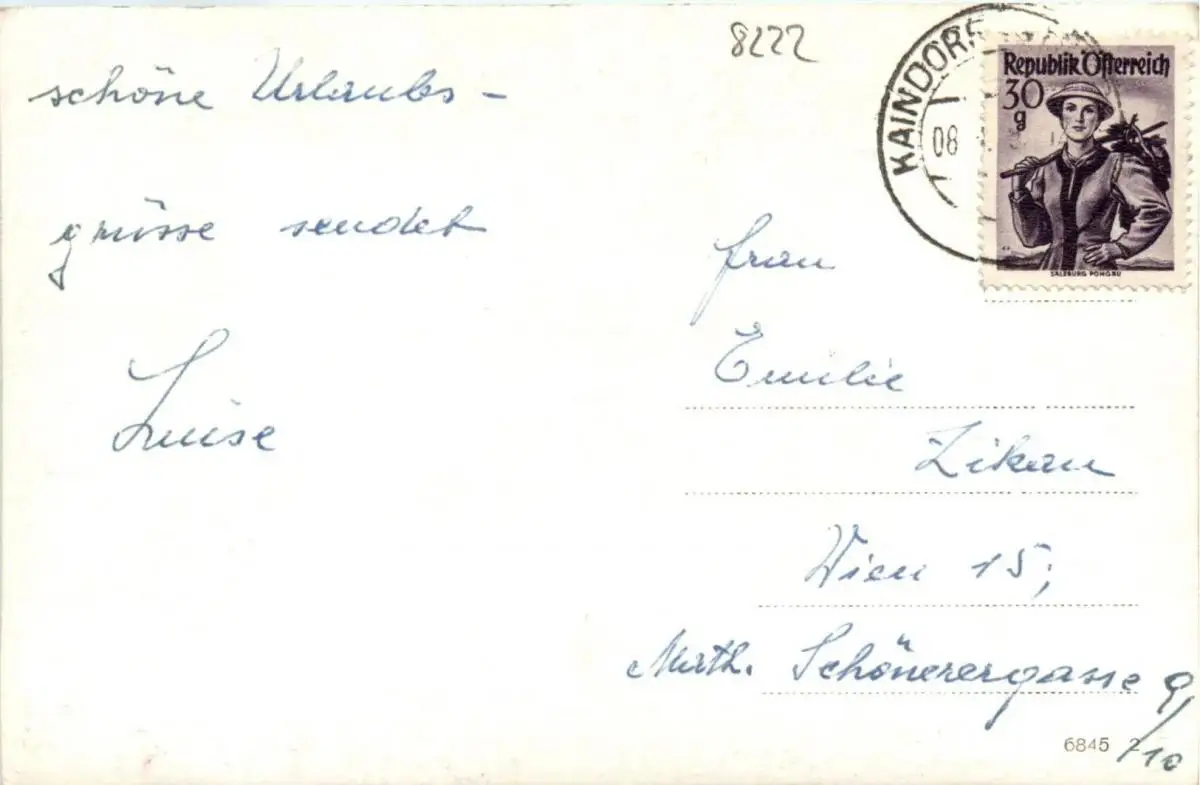 8222
KAINDORF
08
Republik Österreich
30
g
SALZBURG PONGAU
schöne Urlaubs-
grüsse sendet
Luise
Frau
Emilie
Zikan
Wien 15;
Math. Schönerergasse 9/
/10
6845 2